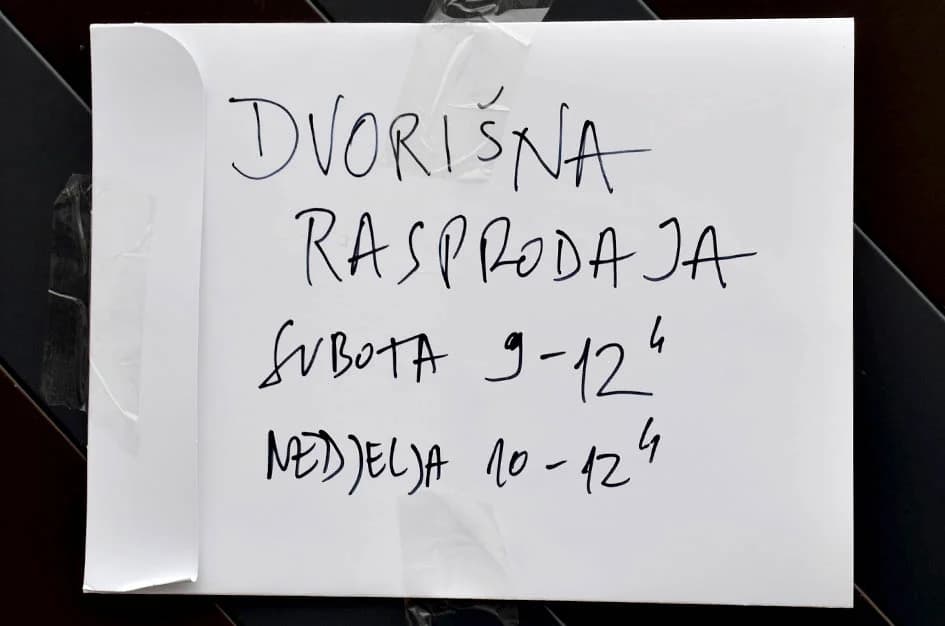 DVORIŠNA
RASPRODAJA
SUBOTA 9-12 h
NEDJELJA 10-12 h